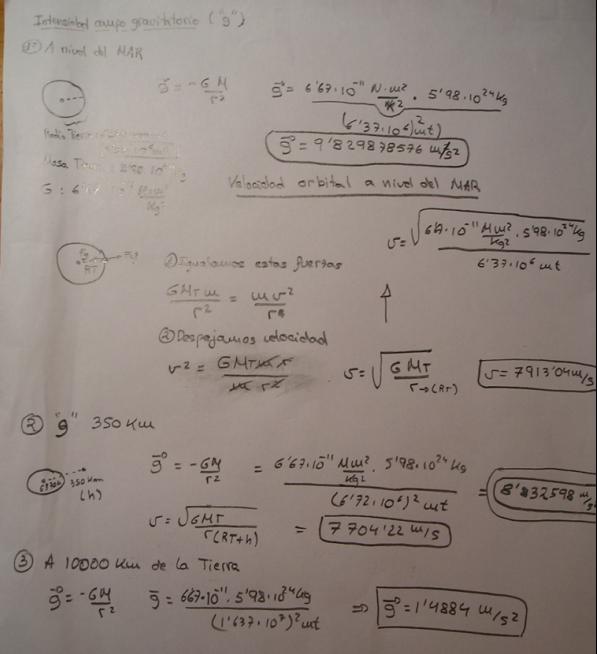 Intensidad campo gravitatorio ("g")
1º A nivel del MAR
g = -G M / r²
g = 6'67·10⁻¹¹ N·m²/k² · 5'98·10²⁴ kg / (6'37·10⁶)² mt)
g = 9'829878576 m/s²
Radio
Masa
G : 6'
Velocidad orbital a nivel del MAR
v = √(6'67·10⁻¹¹ Nm²/kg² · 5'98·10²⁴ kg / 6'37·10⁶ mt)
Fg
RT
① Igualamos estas fuerzas
GMT m / r² = m v² / r
② Despejamos velocidad
v² = GMT m r / m r²
v = √(G MT / r→(RT))
v = 7913'04 m/s
② "g" 350 Km
350 Km
(h)
g = -GM / r² = 6'67·10⁻¹¹ Nm²/kg² · 5'98·10²⁴ kg / (6'72·10⁶)² mt = 8'832598 m/s
v = √(GMT / r(RT+h)) = 7704'22 m/s
③ A 10000 Km de la Tierra
g = -GM / r² g = 667·10⁻¹¹ · 5'98·10²⁴ kg / (1'637·10⁷)² mt ⇒ g = 1'4884 m/s²